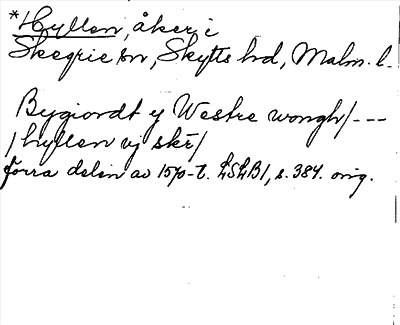 *Hyllen, åker i
Skegrie sn, Skytts hd, Malm. l.
Bygiordt y Westre wongh/---
/hyllen vj skr/
förra delen av 1570-t. LSLB1, s. 384. orig.